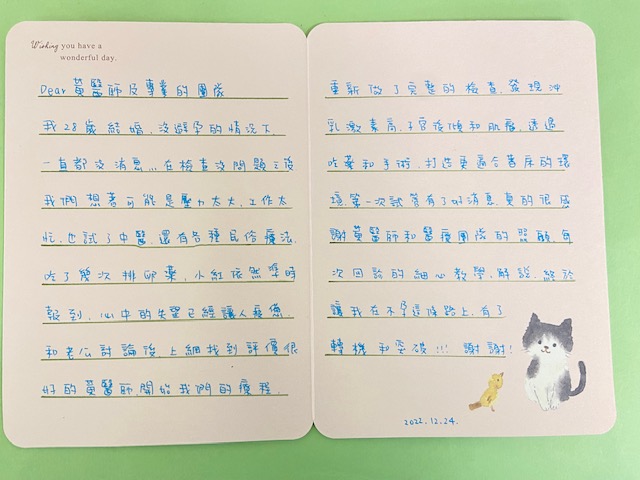 Wishing you have a
wonderful day.
Dear 黃醫師及專業的團隊
我28歲結婚,沒避孕的情況下
一直都沒消息...在檢查沒問題之後
我們想著可能是壓力太大,工作太
忙,也試了中醫,還有各種民俗療法.
吃了幾次排卵藥,小紅依然準時
報到,心中的失望已經讓人疲憊.
和老公討論後,上網找到評價很
好的黃醫師,開始我們的療程.
重新做了完整的檢查,發現泌
乳激素高,子宮後傾和肌瘤,透過
吃藥和手術,打造更適合著床的環
境,第一次試管有了好消息,真的很感
謝黃醫師和醫療團隊的照顧,每
次回診的細心教學,解說,終於
讓我在不孕這條路上,有了
轉機和突破!!! 謝謝!
2022.12.24.